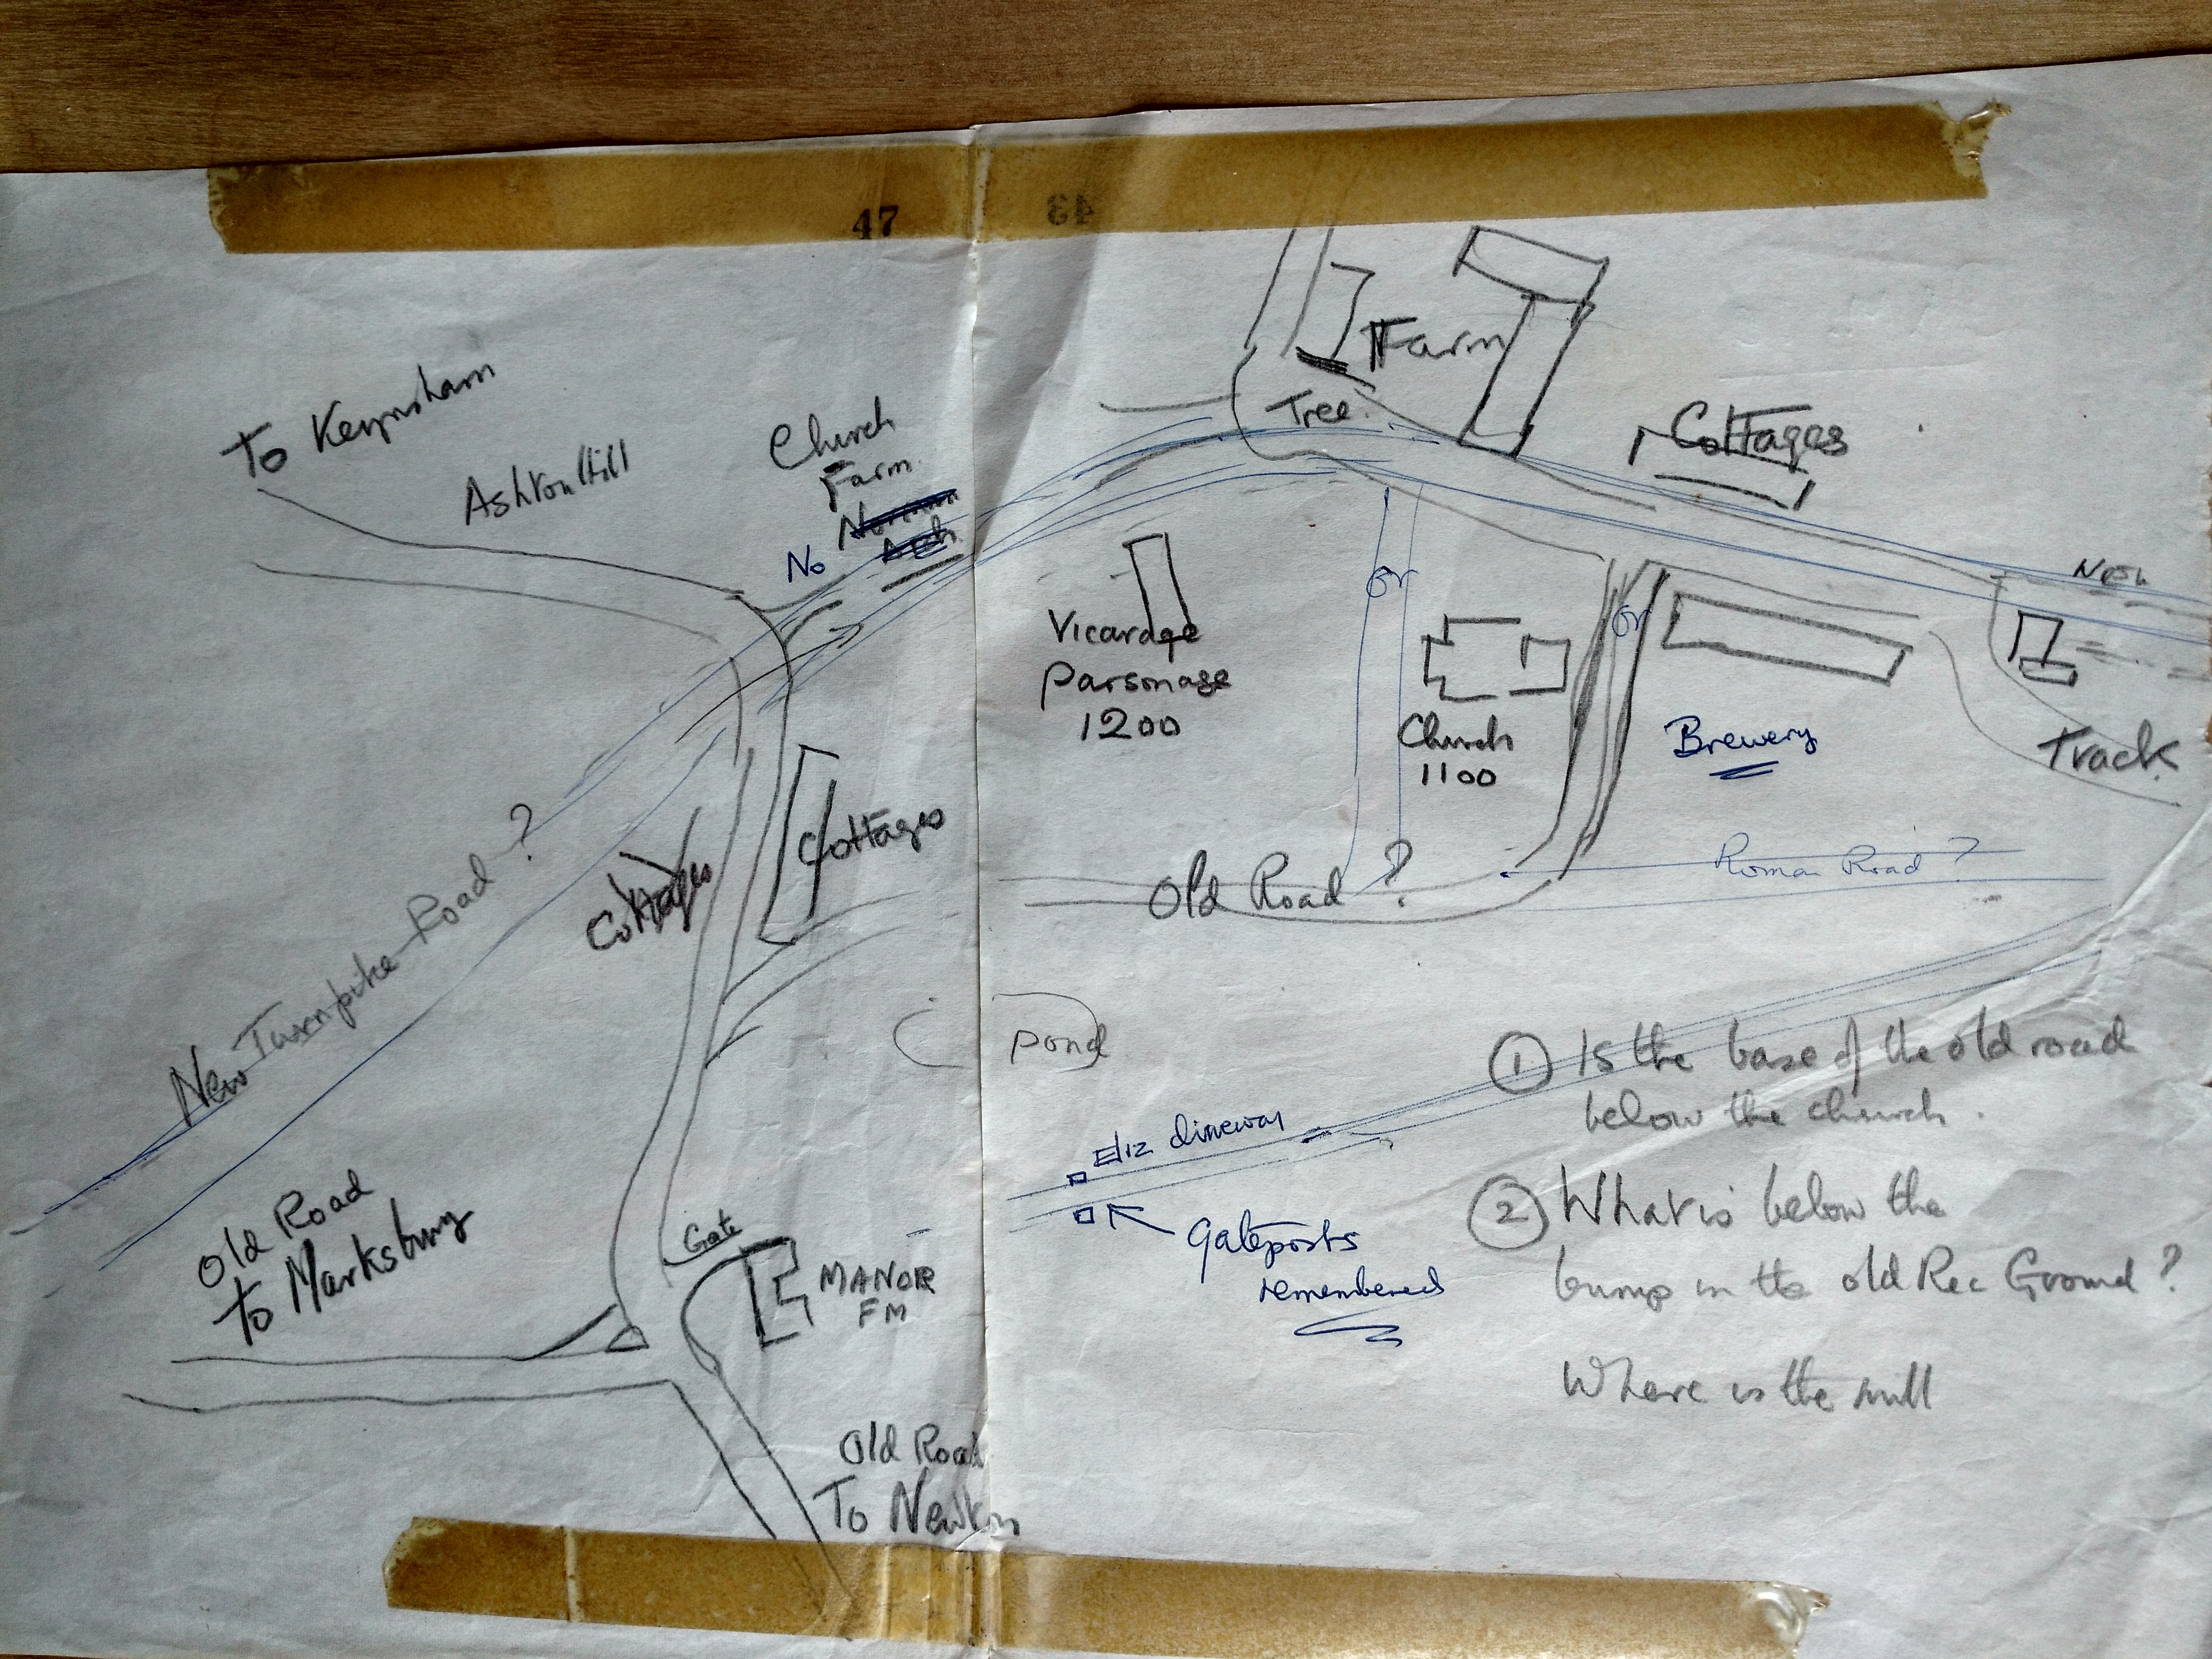 47
43
To Keynsham
Ashton Hill
Church
Farm
Norman
Arch
No
Farm
Tree
Cottages
New
Vicarage
Parsonage
1200
or
Church
1100
or
Brewery
Track
Cottages
Cottages
Old Road ?
Roman Road ?
New Turnpike Road ?
Pond
Eliz driveway
Gateposts
remembered
Old Road
To Marksbury
Gate
MANOR
FM
Old Road
To Newton
① Is the base of the old road
below the church.
② What is below the
bump in the old Rec Ground ?
Where is the mill